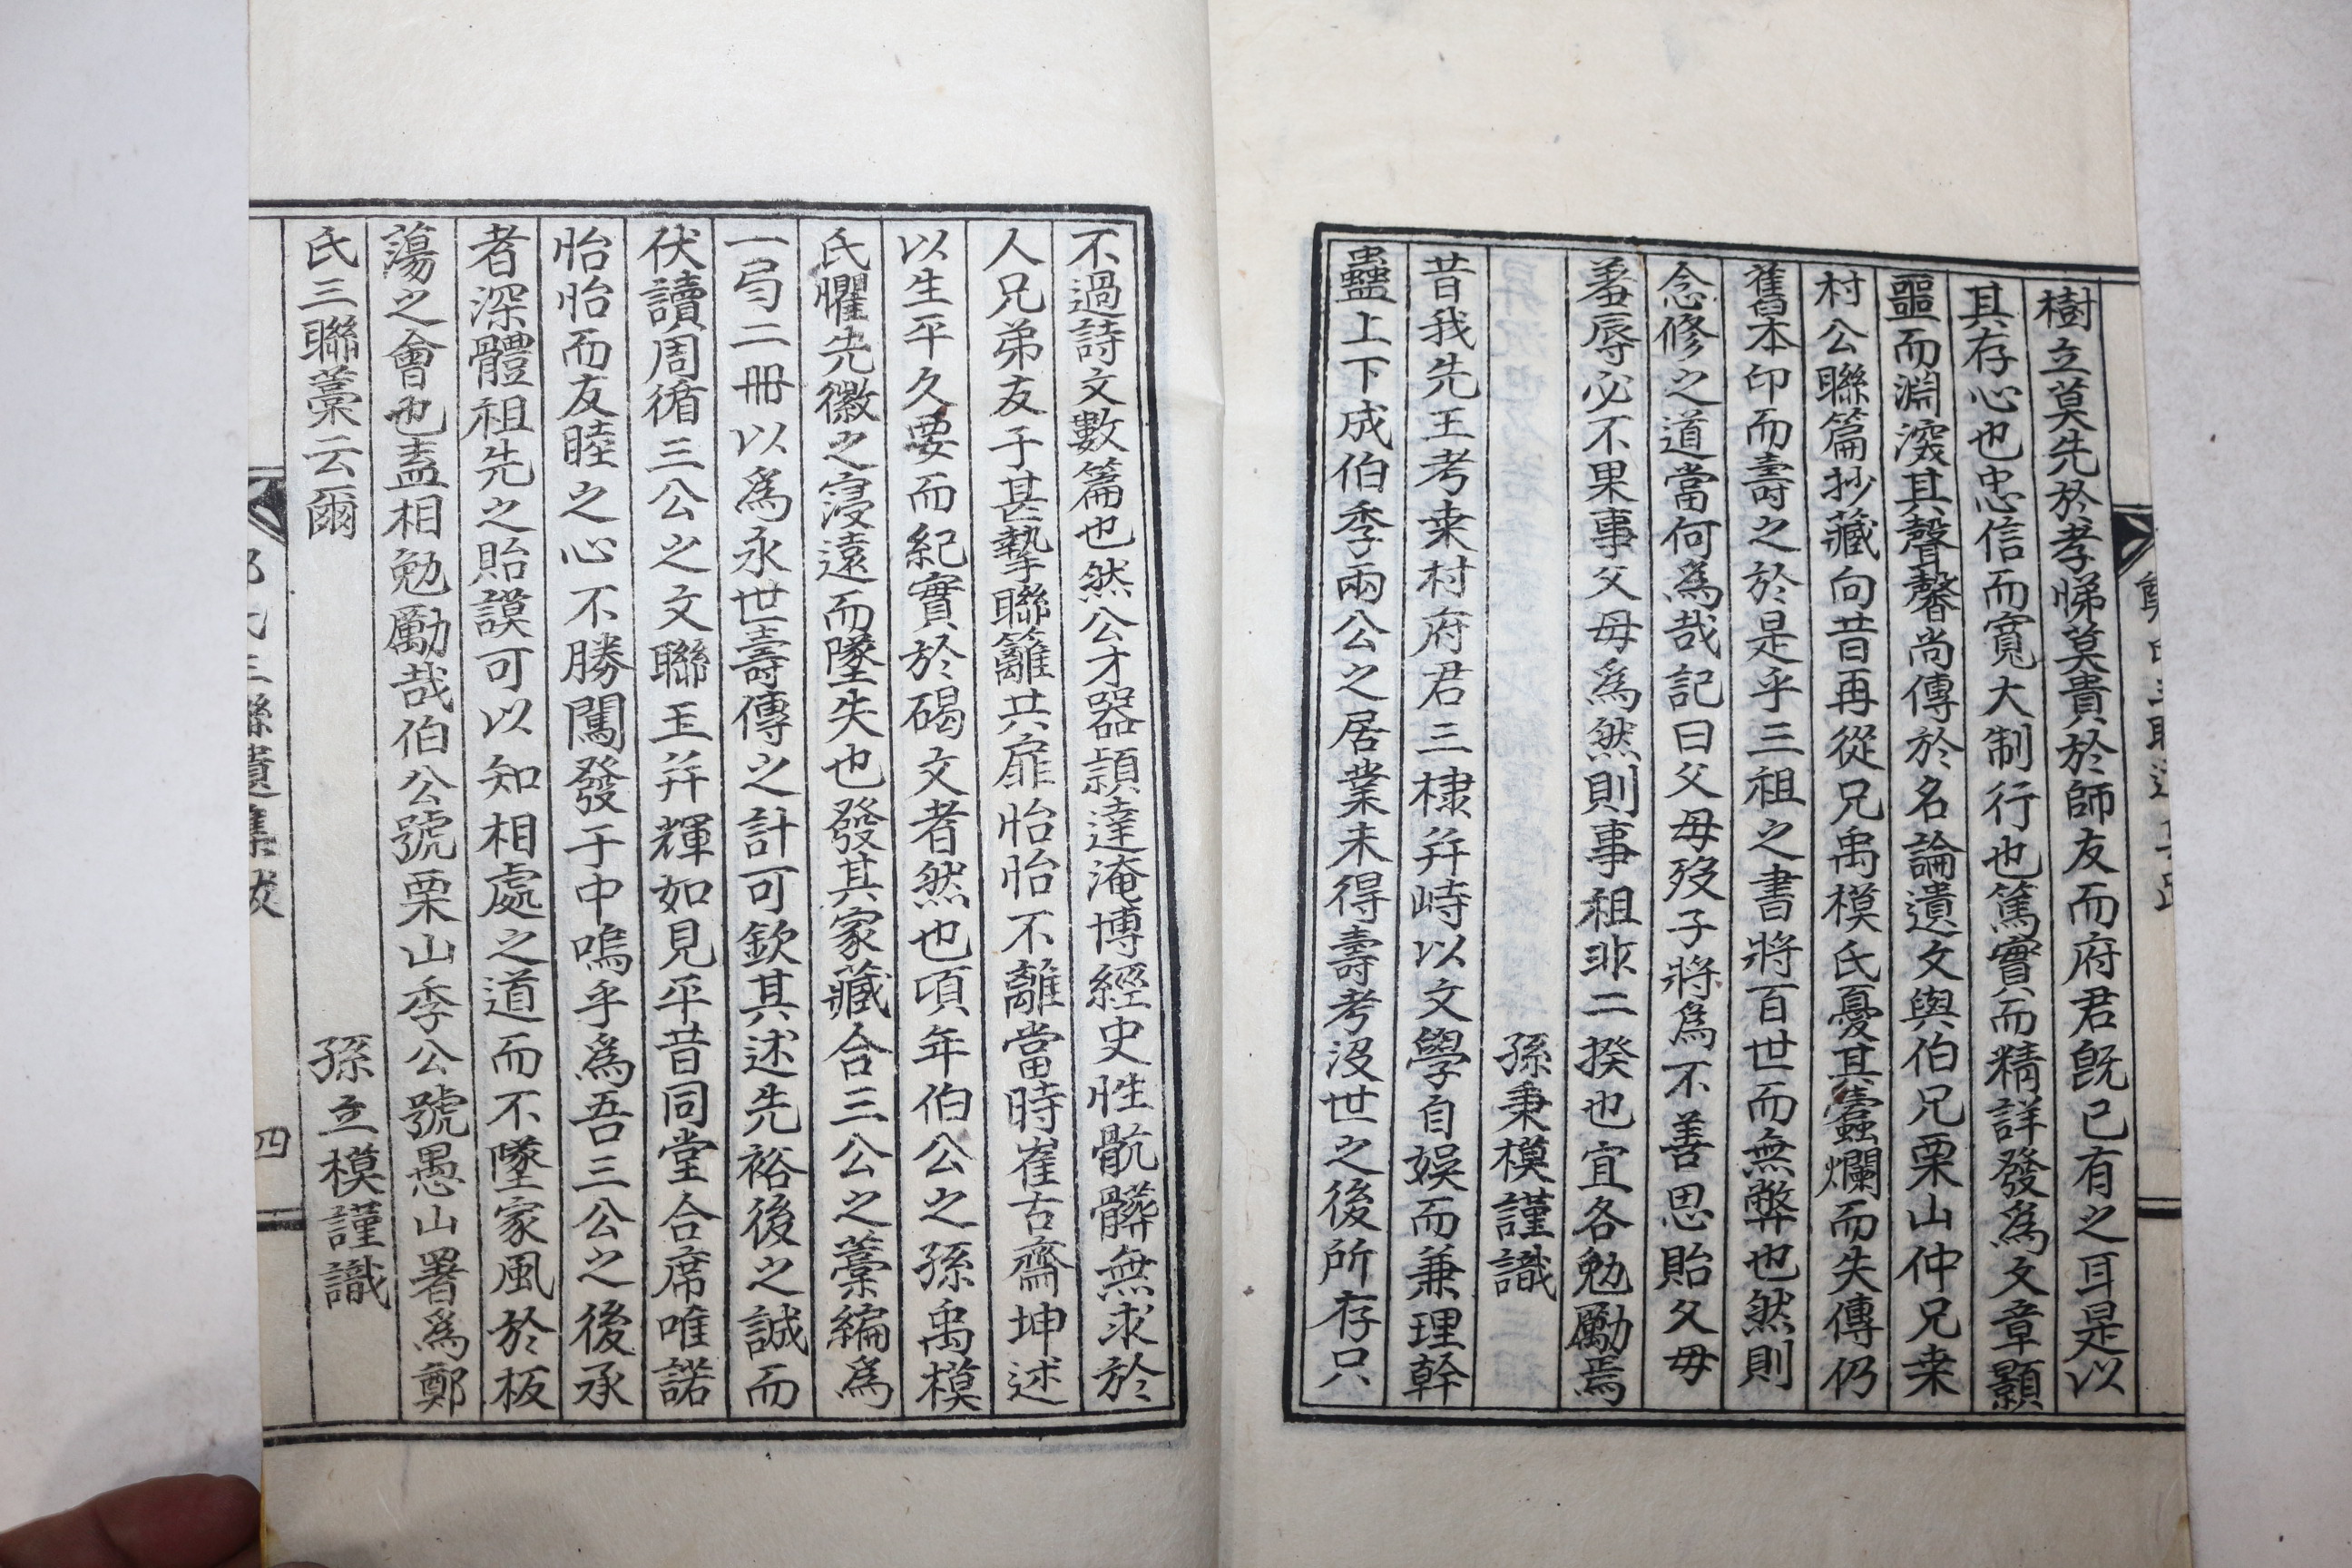 樹立莫先於孝悌莫貴於師友而府君旣已有之耳是以
其存心也忠信而寬大制行也篤實而精詳發爲文章顯
噩而淵深其聲馨尚傳於名論遺文與伯兄栗山仲兄耒
村公聯篇抄藏向昔再從兄禹模氏憂其蠹爛而失傳仍
舊本印而壽之於是乎三祖之書將百世而無弊也然則
念修之道當何爲哉記曰父母歿子將爲不善思貽父母
羞辱必不果事父母爲然則事祖非二揆也宜各勉勵焉
孫秉模謹識
昔我先王考耒村府君三棣幷峙以文學自娛而兼理幹
蠱上下成伯季兩公之居業未得壽考沒世之後所存只
不過詩文數篇也然公才器頴達淹博經史性骯髒無求於
人兄弟友于甚摯聯籬共扉怡怡不離當時崔古齋坤述
以生平久要而紀實於碣文者然也頃年伯公之孫禹模
氏懼先徽之寖遠而墜失也發其家藏合三公之藁編爲
一弓二冊以爲永世壽傳之計可欽其述先裕後之誠而
伏讀周循三公之文聯玉幷輝如見平昔同堂合席唯諾
怡怡而友睦之心不勝闖發于中嗚乎爲吾三公之後承
者深體祖先之貽謨可以知相處之道而不墜家風於板
蕩之會也盍相勉勵哉伯公號栗山季公號愚山署爲鄭
氏三聯藁云爾
孫立模謹識
氏三聯遺集跋
四